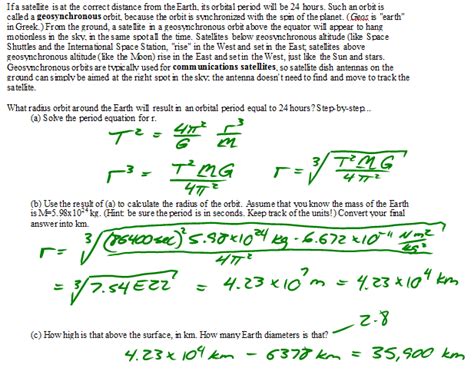 If a satellite is at the correct distance from the Earth, its orbital period will be 24 hours. Such an orbit is
called a geosynchronous orbit, because the orbit is synchronized with the spin of the planet. (Geos is "earth"
in Greek.) From the ground, a satellite in a geosynchronous orbit above the equator will appear to hang
motionless in the sky, in the same spot all the time. Satellites below geosynchronous altitude (like Space
Shuttles and the International Space Station, "rise" in the West and set in the East; satellites above
geosynchronous altitude (like the Moon) rise in the East and set in the West, just like the Sun and stars.
Geosynchronous orbits are typically used for communications satellites, so satellite dish antennas on the
ground can simply be aimed at the right spot in the sky; the antenna doesn't need to find and move to track the
satellite.
What radius orbit around the Earth will result in an orbital period equal to 24 hours? Step-by-step...
(a) Solve the period equation for r.
T² = 4π²/G r³/M
r³ = T²MG/4π² r = ∛(T²MG/4π²)
(b) Use the result of (a) to calculate the radius of the orbit. Assume that you know the mass of the Earth
is M=5.98x10²⁴ kg. (Hint: be sure the period is in seconds. Keep track of the units!) Convert your final
answer into km.
r = ∛((86400 sec)² 5.98x10²⁴ kg · 6.672 x10⁻¹¹ Nm²/kg² / 4π²)
= ∛7.54E22 = 4.23 x 10⁷ m = 4.23 x 10⁴ km
(c) How high is that above the surface, in km. How many Earth diameters is that? 2.8
4.23 x 10⁴ km - 6378 km = 35,900 km